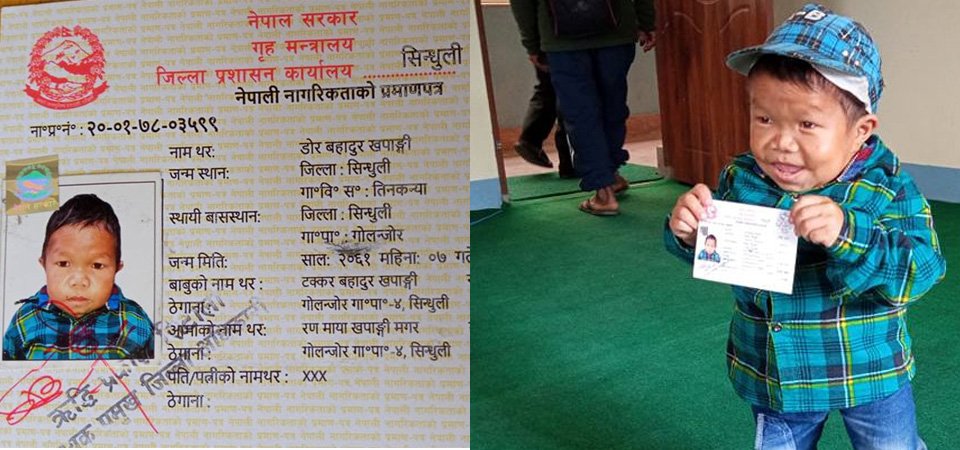 नेपाल सरकार
गृह मन्त्रालय
जिल्ला प्रशासन कार्यालय सिन्धुली
नेपाली नागरिकताको प्रमाणपत्र
ना॰प्र॰नं॰ : २०-०१-७८-०३५९९
नाम थर: डोर बहादुर खपाङ्गी
जन्म स्थान: जिल्ला : सिन्धुली
गा॰वि॰ स॰ : तिनकन्या
स्थायी बासस्थान: जिल्ला : सिन्धुली
गा॰पा॰ : गोलन्जोर
जन्म मिति: साल: २०६१ महिना: ०७
बाबुको नाम थर : टक्कर बहादुर खपाङ्गी
ठेगाना: गोलन्जोर गा॰पा॰-४, सिन्धुली
आमाको नाम थर: रण माया खपाङ्गी मगर
ठेगाना : गोलन्जोर गा॰पा॰-४, सिन्धुली
पति/पत्नीको नामथर : XXX
ठेगाना :